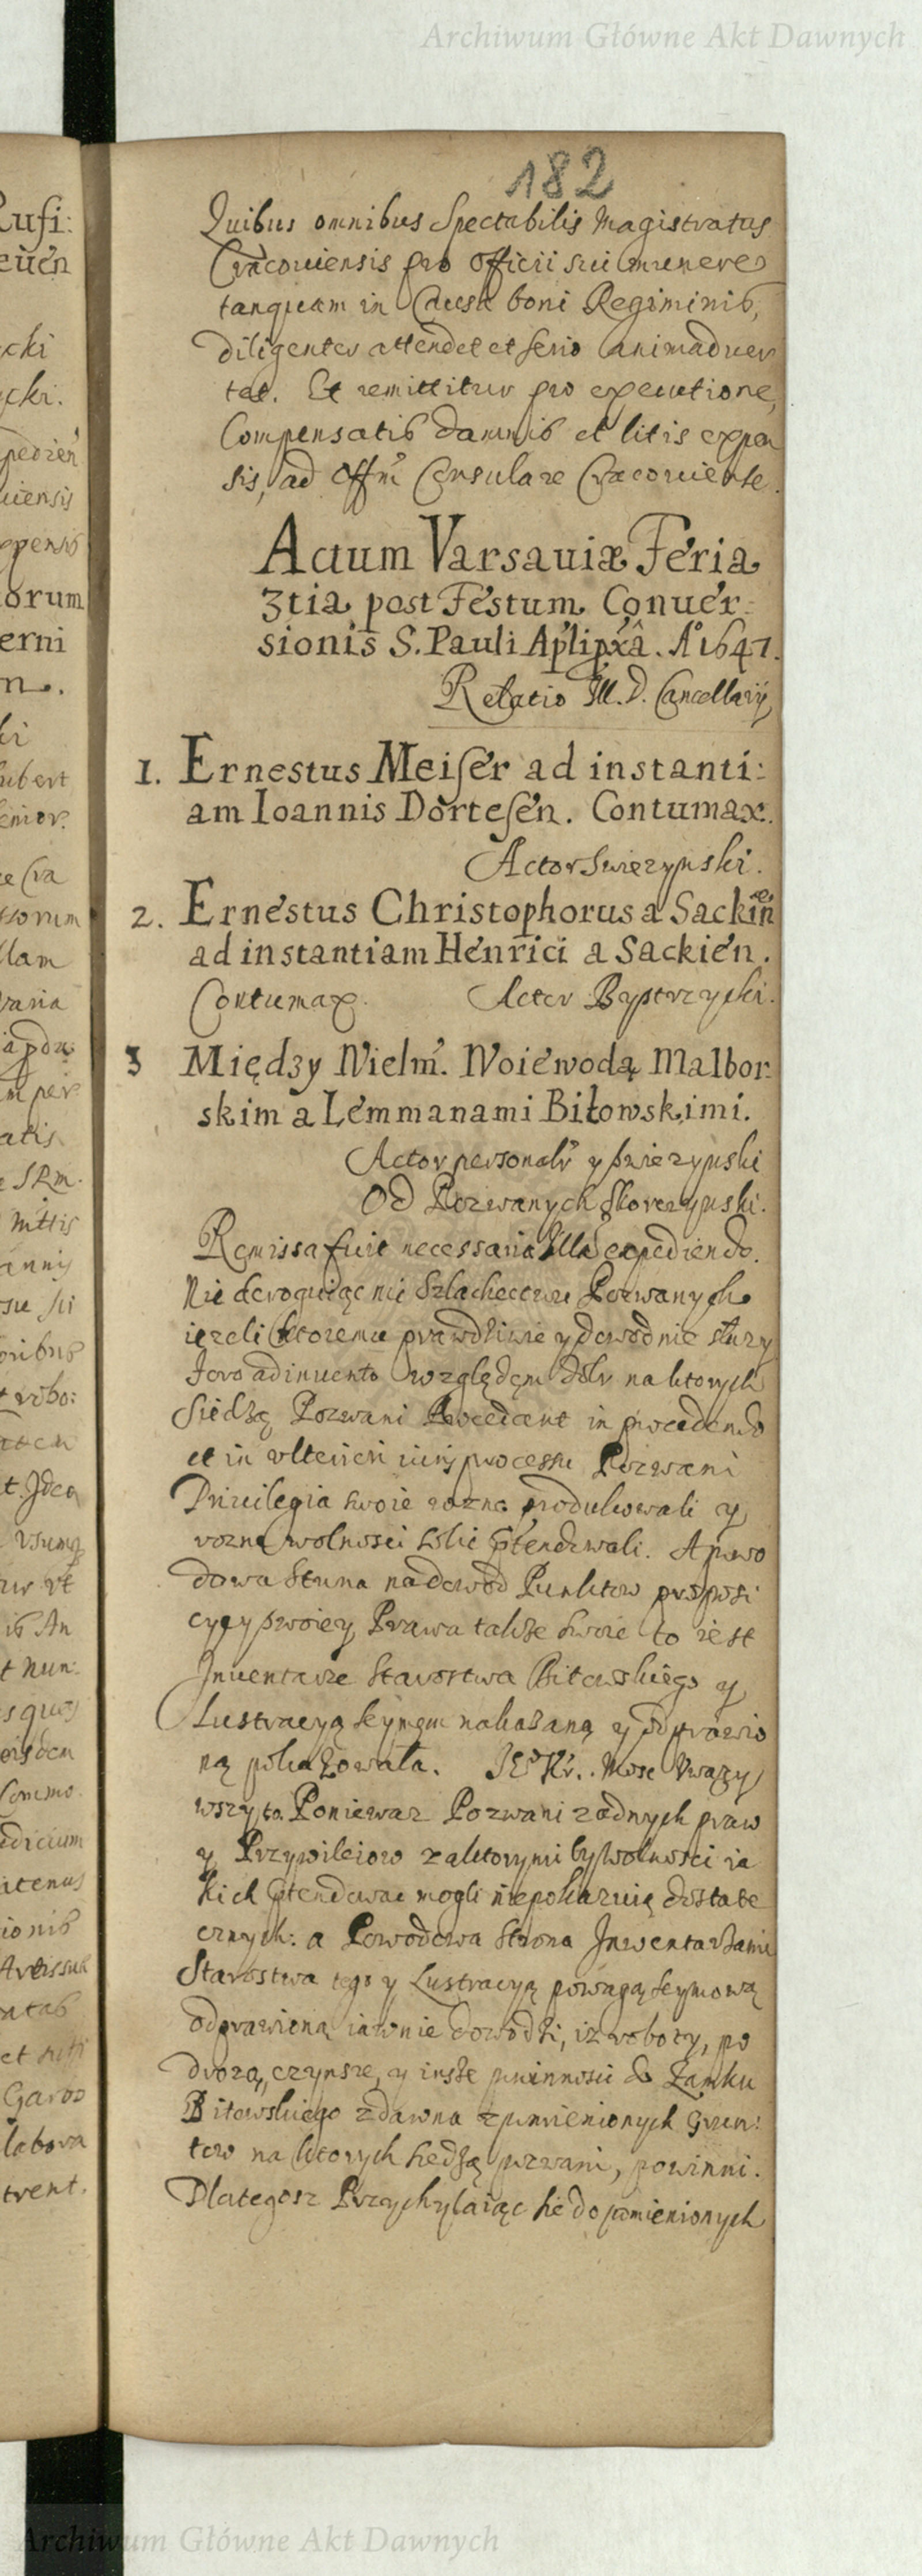 Archiwum Główne Akt Dawnych
182
Quibus omnibus Spectabilis Magistratus
Cracouiensis pro officii sui munere
tanquam in Causa boni Regiminis,
diligenter attendet et serio animaduer
tet. Et remittitur pro executione,
Compensatis damnis et litis expen
sis, ad Offm Consulare Cracouiense.
Actum Varsauiæ Feria
3tia post Festum Conuer-
sionis S. Pauli Aplipxâ. A° 1647.
Relatio Ill. D. Cancellarij
1. Ernestus Meiser ad instanti:
am Ioannis Dortesen. Contumax.
Actor Swiezynski.
2. Ernestus Christophorus a Sackin
ad instantiam Henrici a Sackien.
Contumax. Actor Bystrzycki.
3 Między Wielm. Woiewodą Malbor:
skim a Lemmanami Bitowskimi.
Actor personalr y Swiezynski
Od Pozwanych Skorczynski.
Remissa fuit necessaria Illa expediendo.
Nie deroguiąc nic Szlachectwu Pozwanych
iezeli ktoremu prawdziwie y dowodnie słuzy
Foro adinuento względem dobr na ktorych
Siedzą Pozwani Procedant in procedendo
et in vlteriori iuris processu Pozwani
Priuilegia swoie rozne produkowali y
rozne wolnosci sobie ptendowali. A powo
dowa Strona na dowod Punktow proposi
cyey swoiey Prawa takze swoie to iest
Inuentarze Starostwa Bitowskiego y
Lustracyą Seymem nakazaną y odprawio
ną pokazowała. JKr. Mosc Vwazy
wszy to Poniewaz Pozwani zadnych praw
y Przywileiow zaktorymi by wolnosci ia
kich ptendowac mogli niepokazuią dostate
cznych: a Powodowa Strona Inwentarzami
Starostwa tego y Lustracyą powagą Seymową
odprawioną iawnie dowodzi, iz roboty, po
dvozą, czynsze, y insze powinnosci do Zamku
Bitowskiego zdawna zpomienionych Grun:
tow na ktorych siedzą pozwani, powinni.
Dlategosz Przychylaiąc sie do pomienionych
Archiwum Główne Akt Dawnych